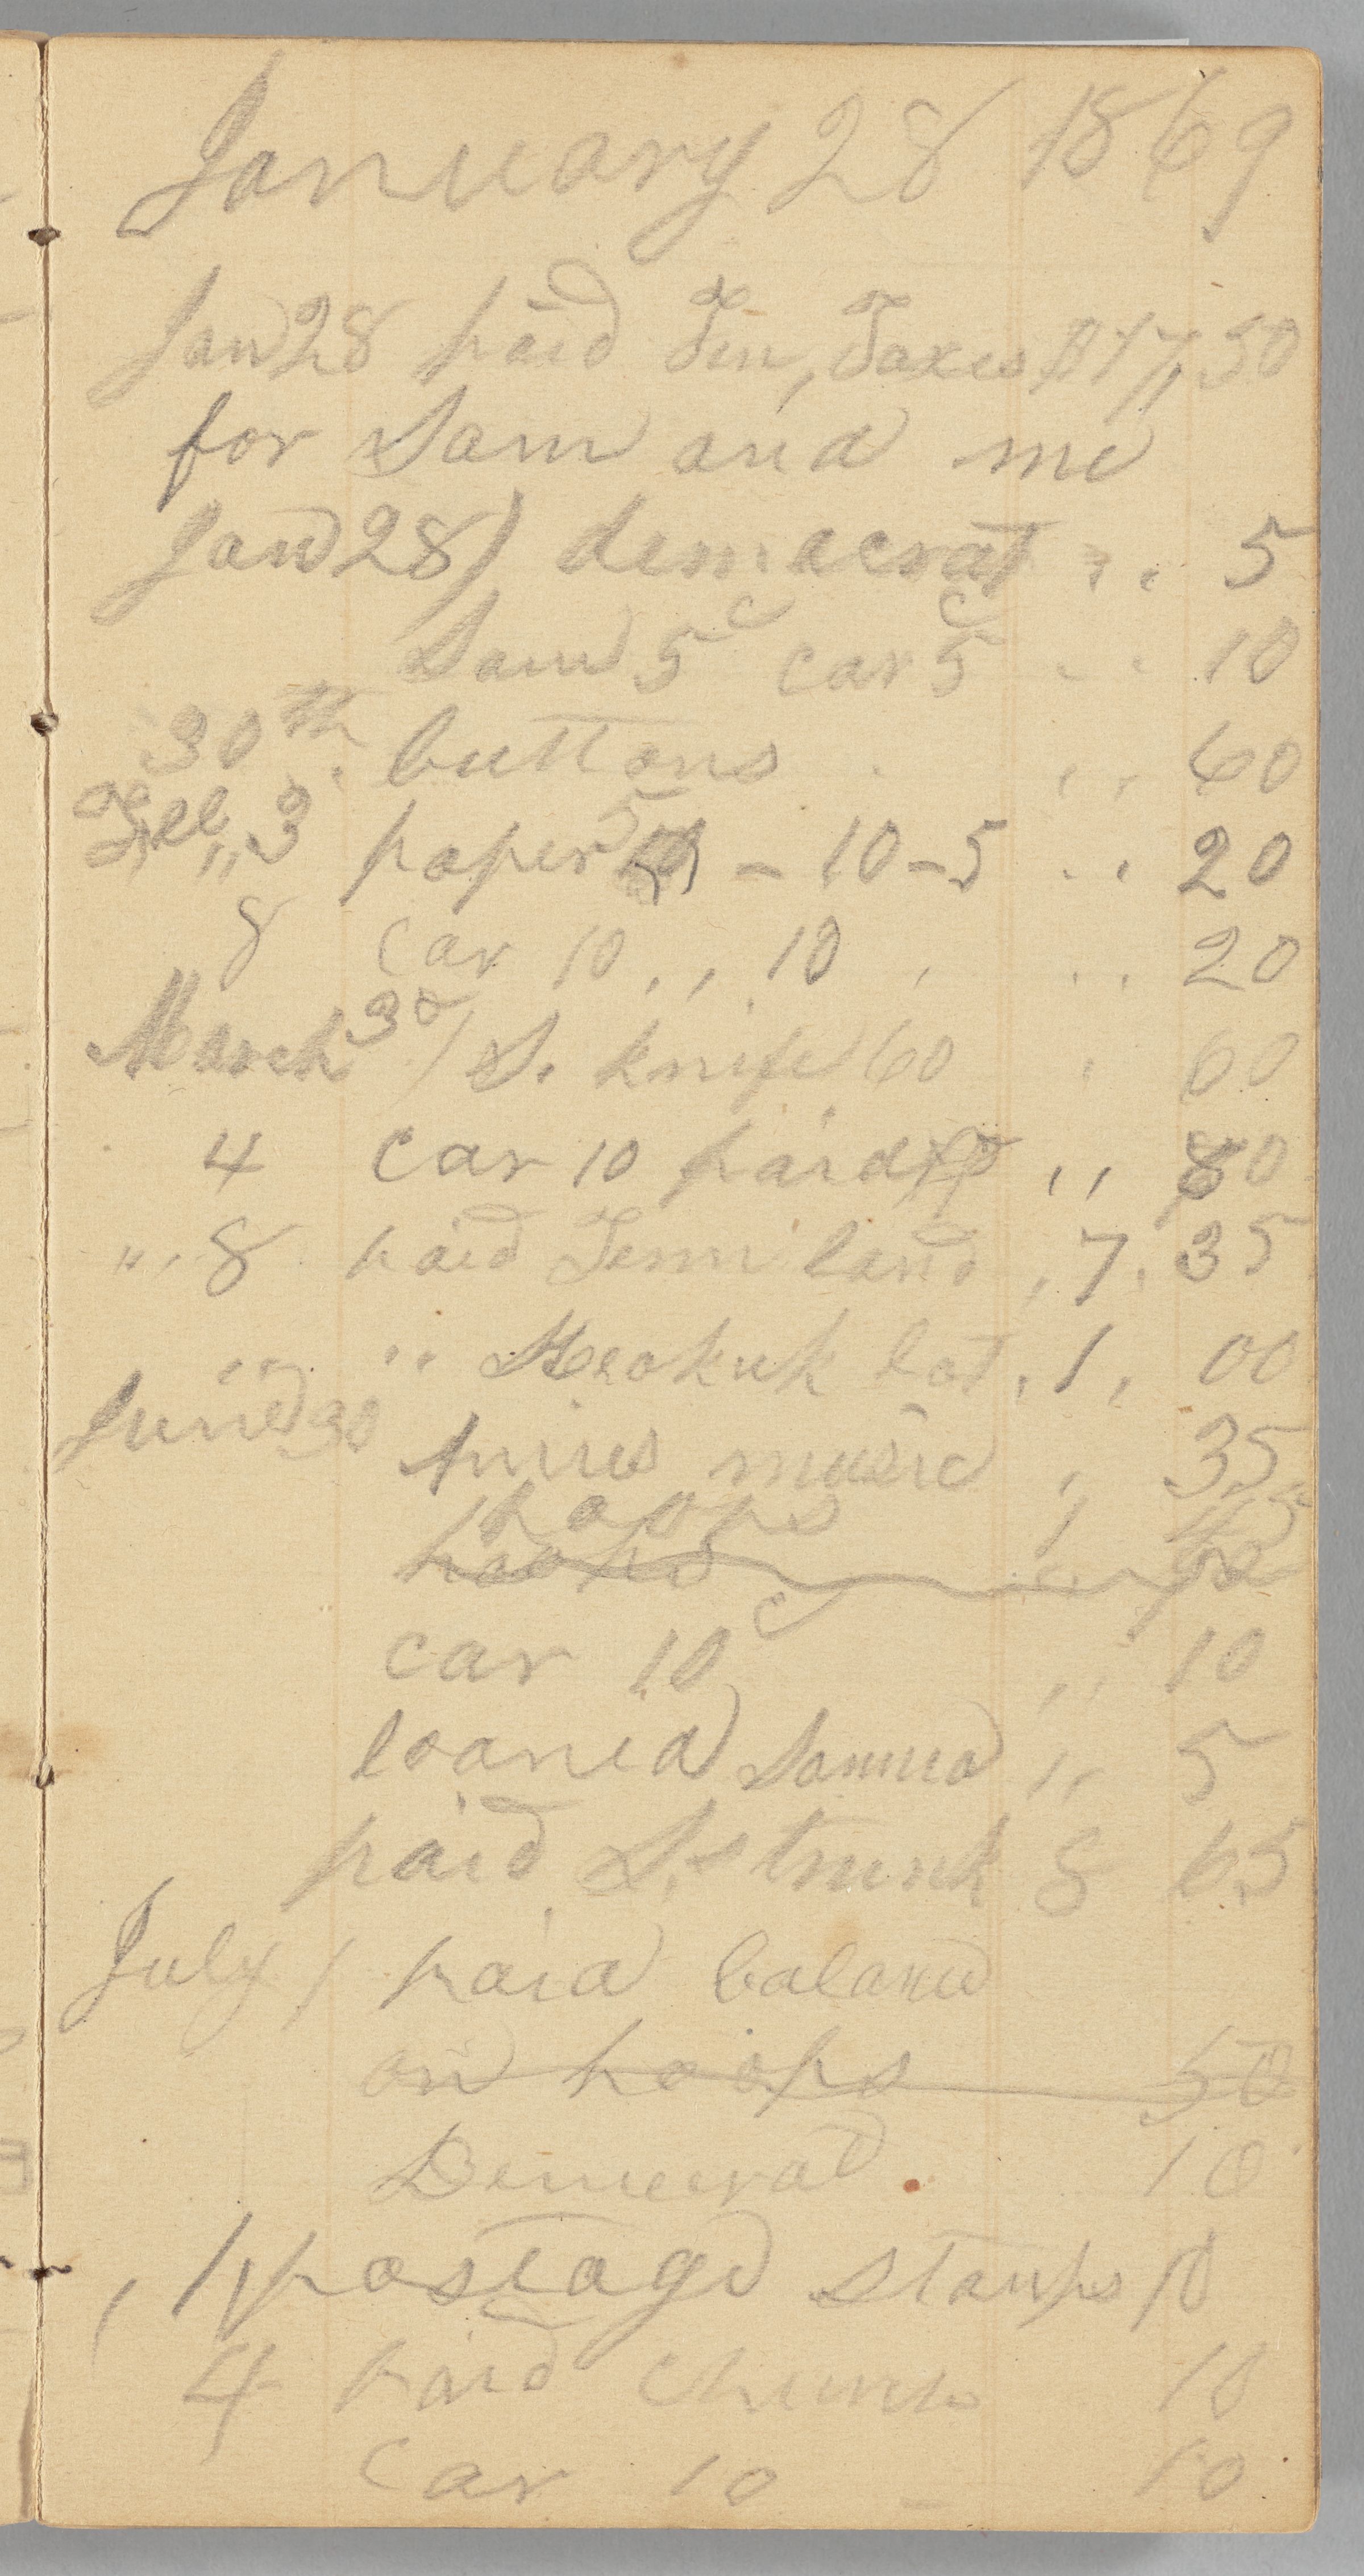 January 28 1869
Jan 28 paid Ten, Taxes $17,50
for Sam and me
Jan 28) democrat ,, 5
Sam 5c car 5c ,, 10
30th. buttons . ,, 60
Feb ,, 3 paper 5 - 10 - 5 ,, 20
8 car 10 ,, 10 , ,, 20
March 3d / S. knife 60 , 60
4 car 10 paid ,, 80
,, 8 paid Tenn land , 7. 35
,, ,, Keokuk lot , 1, 00
June 30 music , 35
hoops ,
hoops
car 10c ,, 10
loaned ,, 5
paid S. trunk 8 65
July / paid balance
on hoops 50
Democrat 10
, 1, postage stamps 10
4 paid church 10
car 10 10